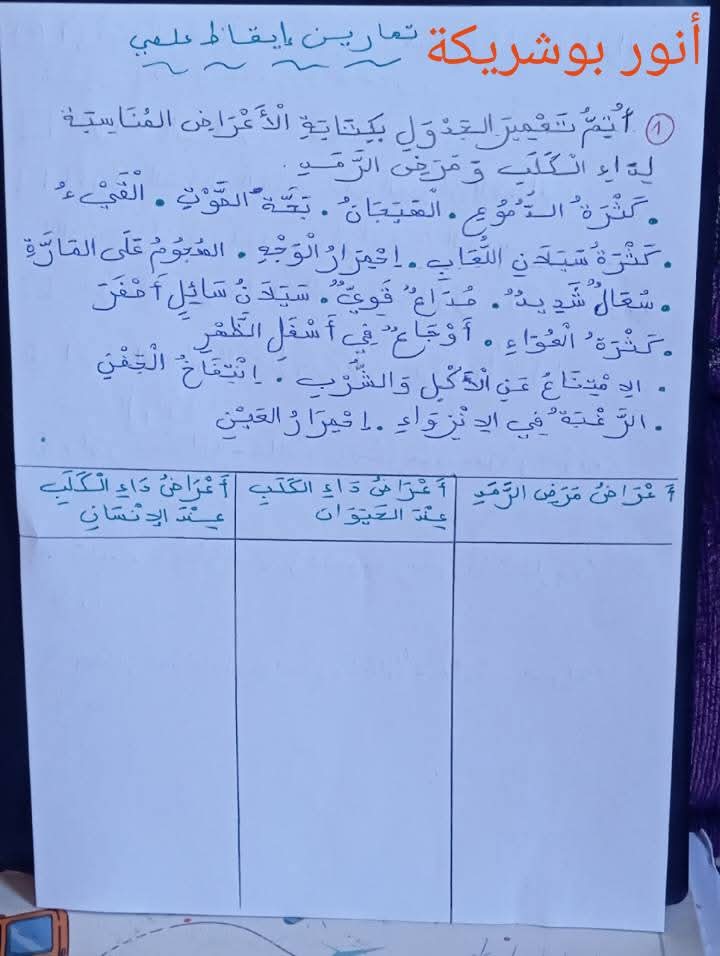 أنور بوشريكة
تمارين إيقاظ علمي
① أُتِمُّ تَعْمِيرَ الجَدْوَلِ بِكِتَابَةِ الْأَعْرَاضِ المُنَاسِبَةِ
لِدَاءِ الْكَلَبِ وَ مَرَضِ الرَّمَدِ.
. كَثْرَةُ الدُّمُوعِ . الْهَيَجَانُ . بَحَّةُ الصَّوْتِ . الْقَيْءُ
. كَثْرَةُ سَيَلَانِ اللُّعَابِ . اِحْمِرَارُ الْوَجْهِ . الهُجُومُ عَلَى المَارَّةِ
. سُعَالٌ شَدِيدٌ . صُدَاعٌ قَوِيٌّ . سَيَلَانُ سَائِلٍ أَصْفَرَ
. كَثْرَةُ الْعُوَاءِ . أَوْجَاعٌ فِي أَسْفَلِ الظَّهْرِ
. الِامْتِنَاعُ عَنِ الْأَكْلِ وَالشُّرْبِ . اِنْتِفَاخُ الْجَفْنِ
. الرَّغْبَةُ فِي الِانْزِوَاءِ . اِحْمِرَارُ العَيْنِ
أَعْرَاضُ مَرَضِ الرَّمَدِ
أَعْرَاضُ دَاءِ الكَلَبِ
عِنْدَ الحَيَوَان
أَعْرَاضُ دَاءِ الْكَلَبِ
عِنْدَ الإِنْسَانِ